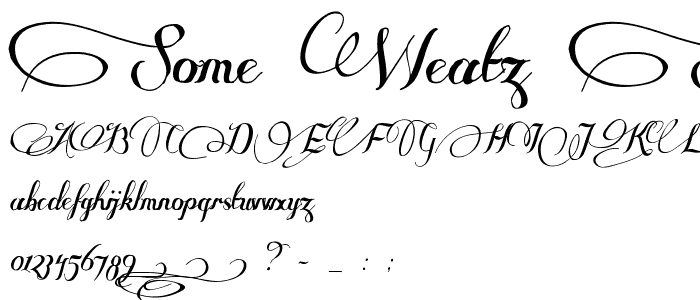 Some Weatz S
ABCDEFGHIJKL
abcdefghijklmnopqrstuvwxyz
0123456789 ? - _ : ;